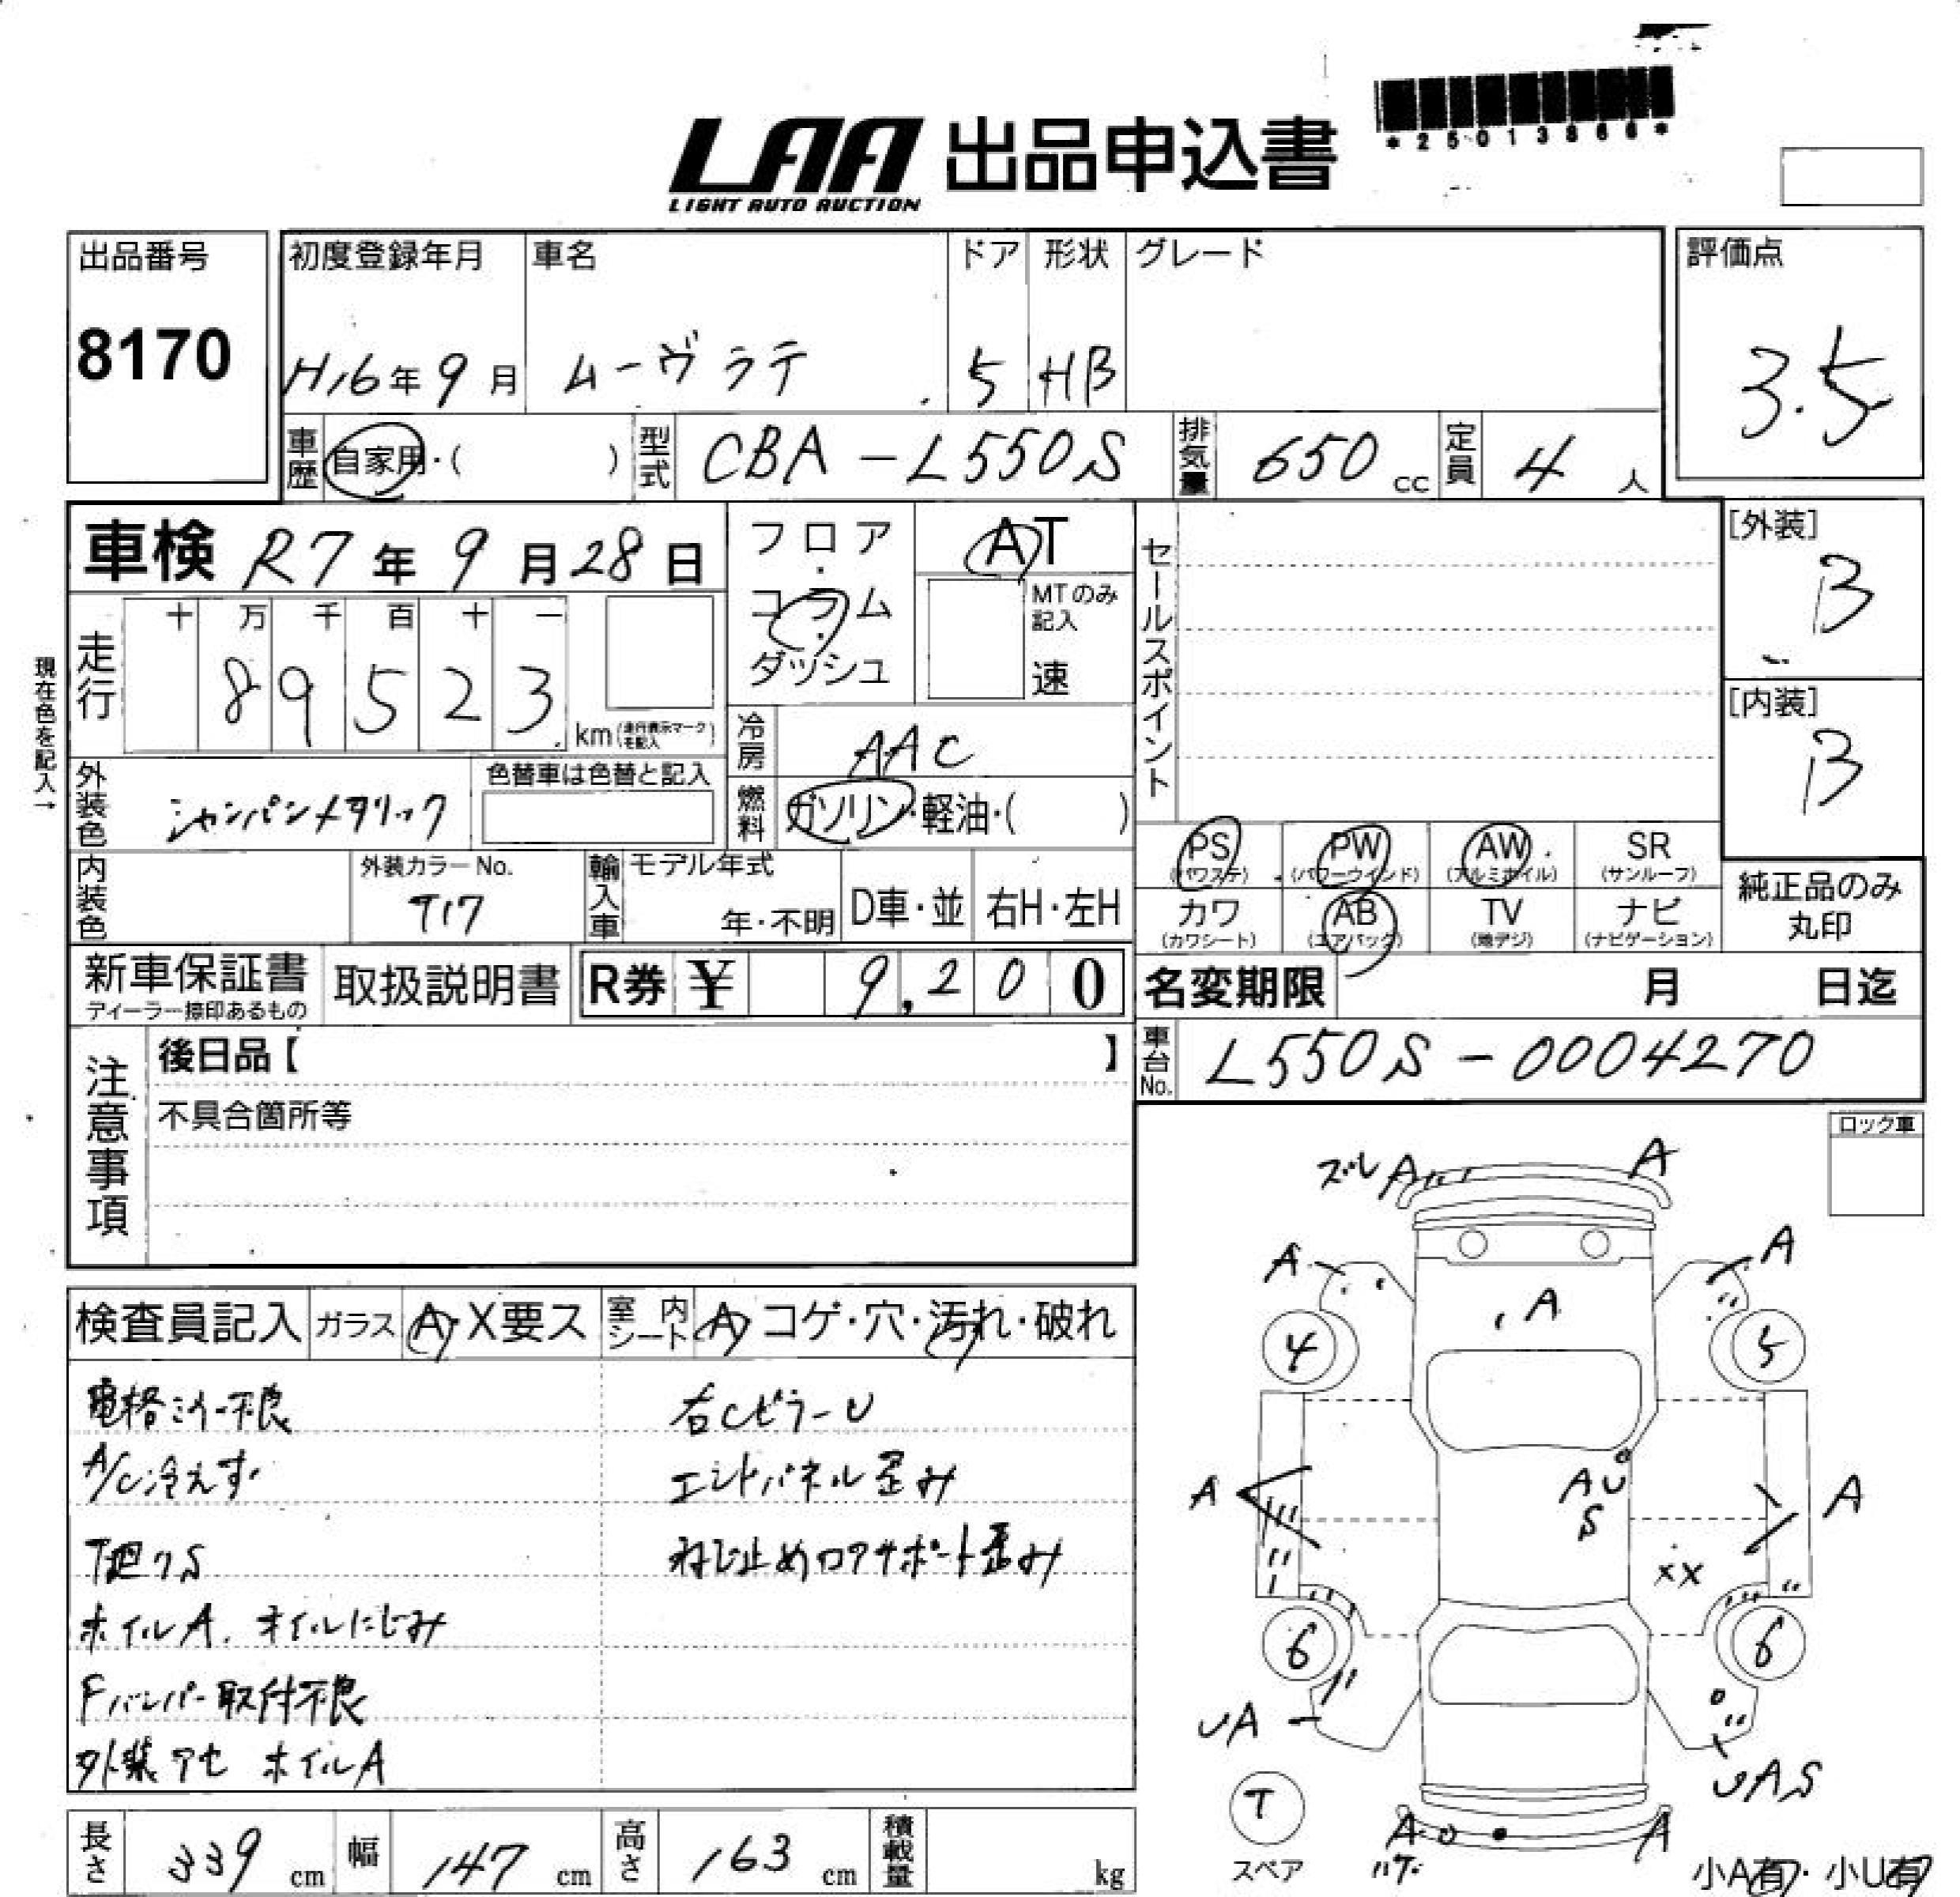 LAA 出品申込書
LIGHT AUTO AUCTION
*25013866*
出品番号 初度登録年月 車名 ドア 形状 グレード 評価点
8170 H16年9月 ムーヴラテ 5 HB 3.5
車歴 自家用・( ) 型式 CBA-L550S 排気量 650cc 定員 4人
車検 R7年9月28日 フロア・コラム・ダッシュ AT セールスポイント [外装] B
MTのみ記入 速
走行 十 万 千 百 十 一
89523 km(走行表示マークを記入)
現在色を記入→
冷房 AAC [内装] B
外装色 シャンパンメタリック 色替車は色替と記入 燃料 ガソリン・軽油・( )
PS(パワステ) PW(パワーウインド) AW(アルミホイル) SR(サンルーフ)
内装色 外装カラーNo. T17 輸入車 モデル年式 年・不明 D車・並 右H・左H
カワ(カワシート) AB(エアバッグ) TV(地デジ) ナビ(ナビゲーション) 純正品のみ丸印
新車保証書 ディーラー捺印あるもの 取扱説明書 R券 ¥ 9,200 名変期限 月 日迄
注意事項 後日品【 】 車台No. L550S-0004270
不具合箇所等 ロック車
検査員記入 ガラス A・X要ス 室内シート A・コゲ・穴・汚れ・破れ
電格ミラー不良 右CピラーU
A/C冷えず エンドパネル歪み
下廻りS ねじ止めロアサポート歪み
ホイルA. オイルにじみ
Fバンパー取付不良
外装アセ ホイルA
ズレ A A
A A
A
4 5
A AU A
S
XX
6 6
UA UAS
T
スペア
A A
ハゲ
小A有・小U有
長さ 339cm 幅 147cm 高さ 163cm 積載量 kg